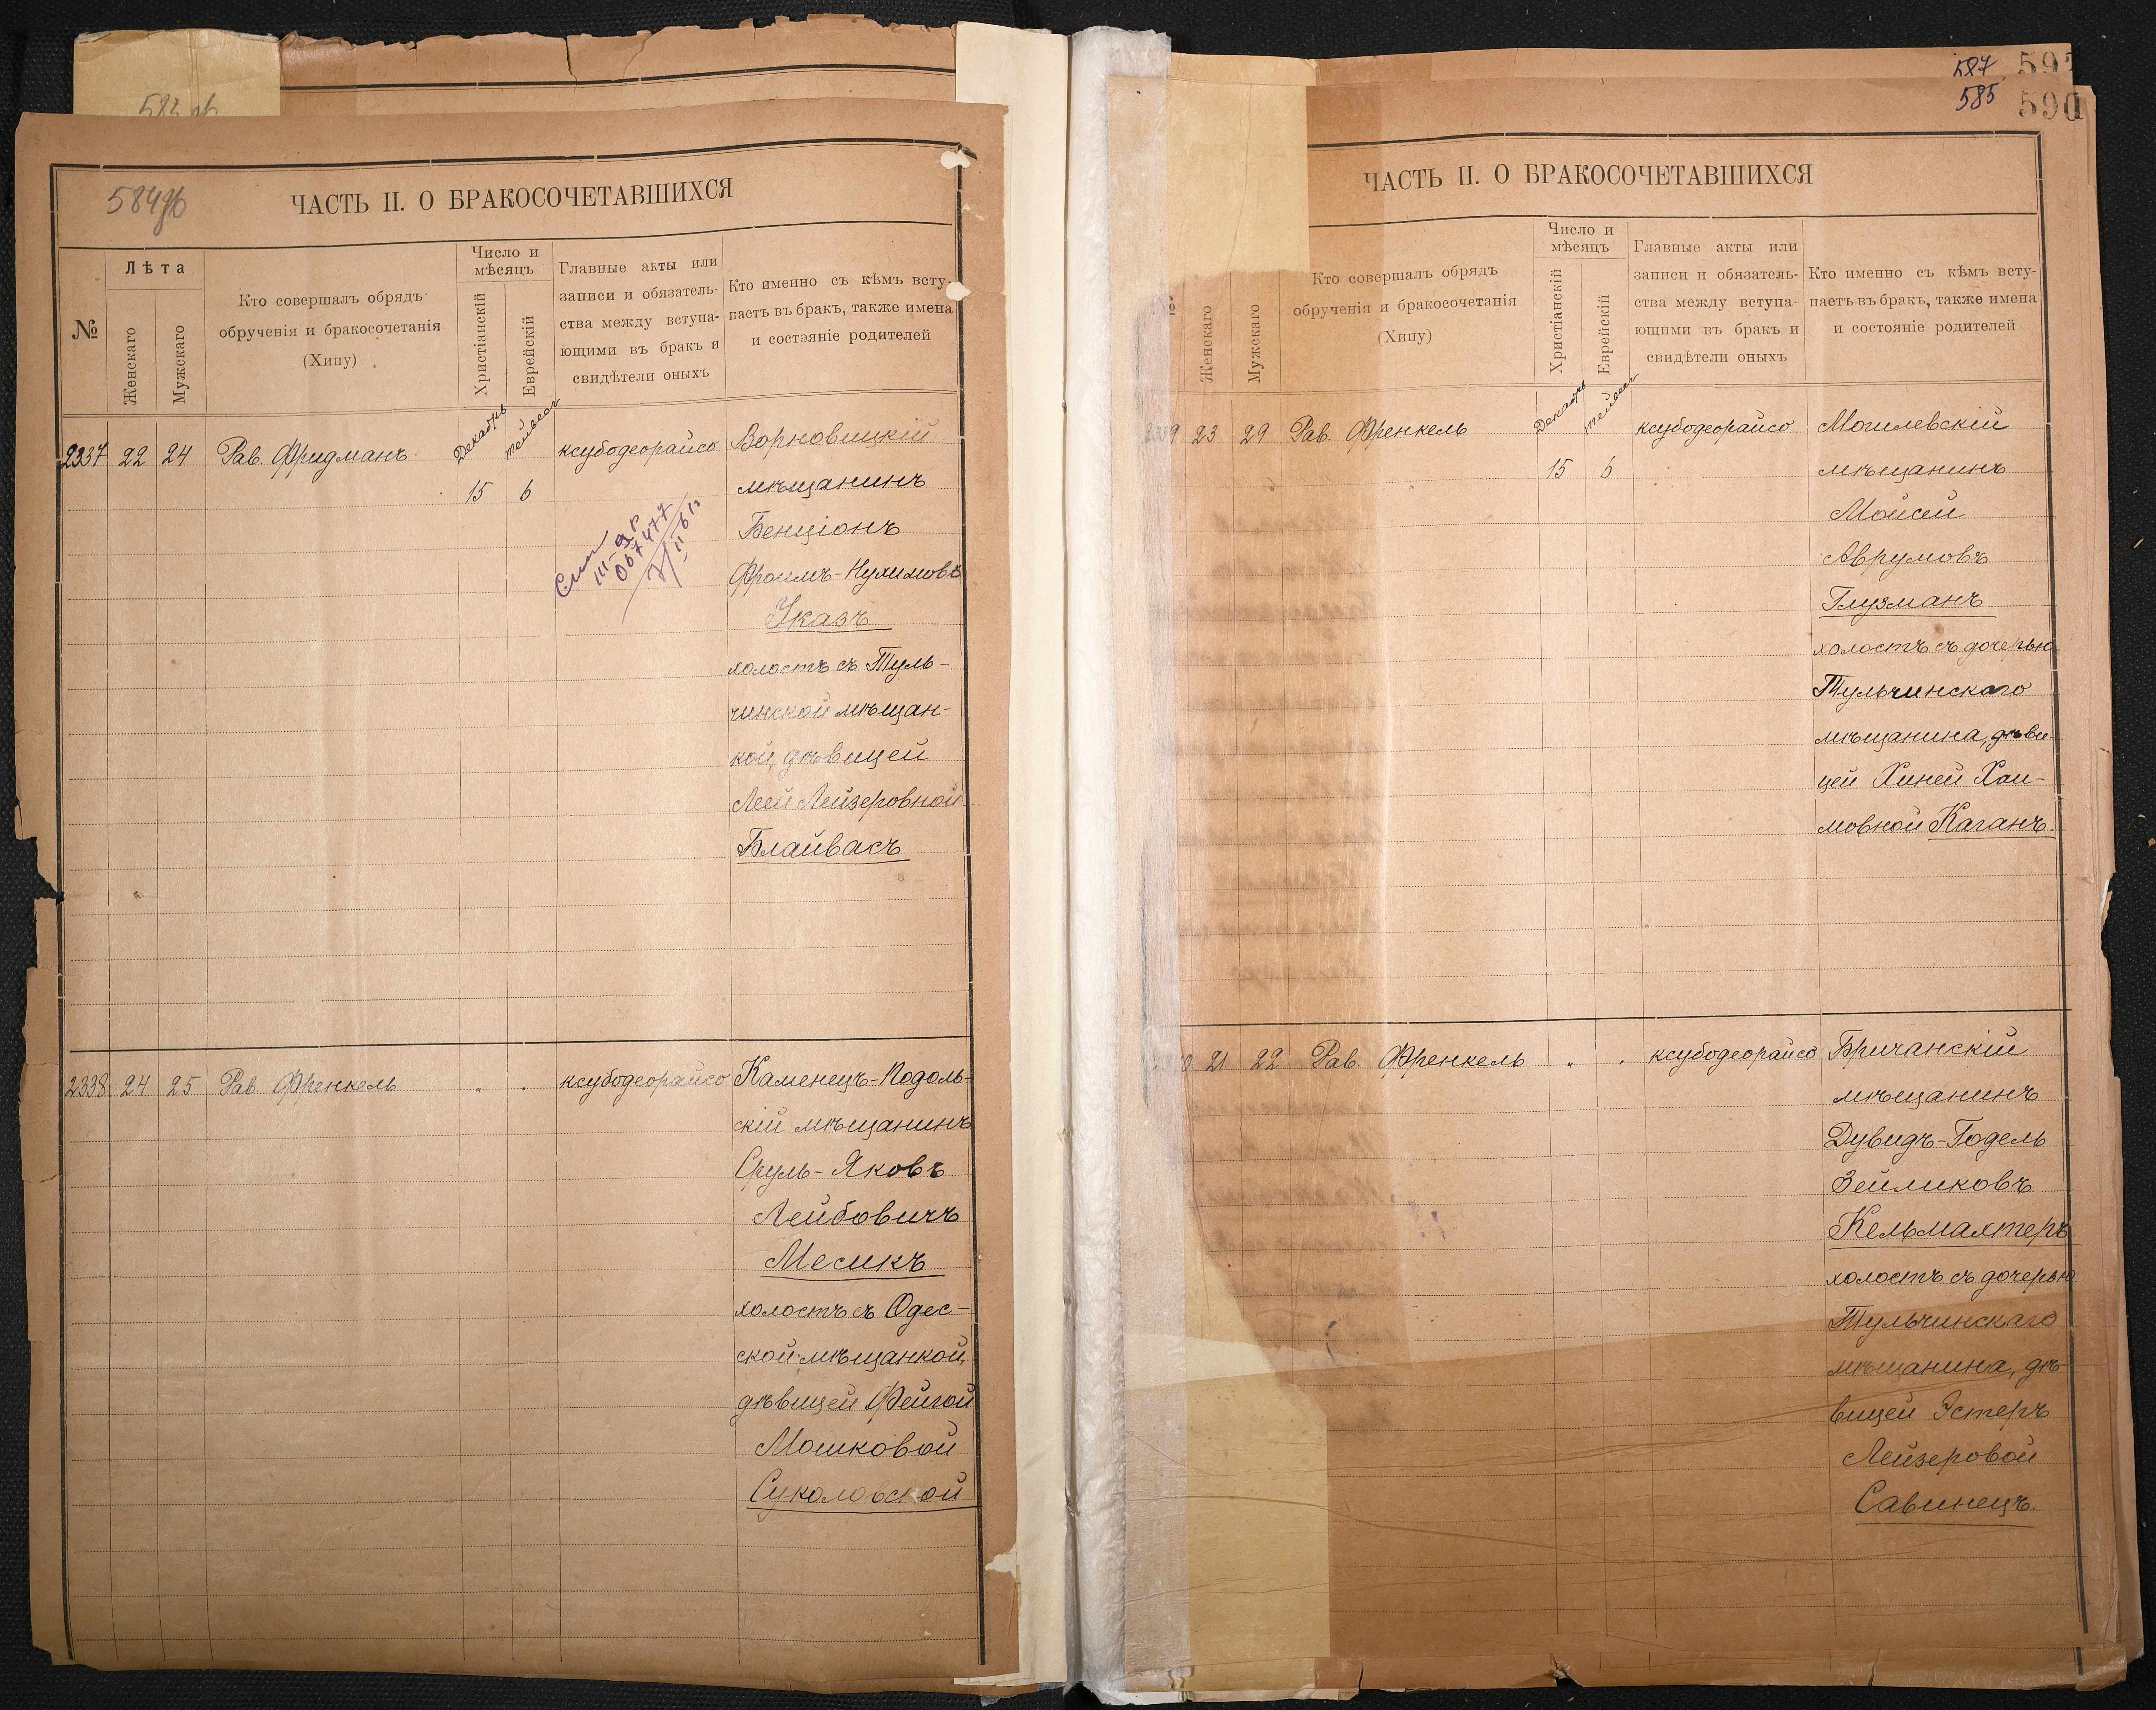 584об
ЧАСТЬ II. О БРАКОСОЧЕТАВШИХСЯ
№
Лѣта
Женскаго
Мужскаго
Кто совершалъ обрядъ
обрученія и бракосочетанія
(Хипу)
Число и
мѣсяцъ
Христіанскій
Еврейскій
Главные акты или
записи и обязатель-
ства между вступа-
ющими въ бракъ и
свидѣтели оныхъ
Кто именно съ кѣмъ всту-
паетъ въ бракъ, также имена
и состояніе родителей
Декабрь
тейвес
2337 22 24 Рав. Фридманъ
15 6
ксубодеорайсо
Ворновицкій
мѣщанинъ
Бенціонъ
Фроимъ-Нухимовъ
Указъ
холостъ съ Туль-
чинской мѣщан-
кой, дѣвицей
Леей Лейзеровной
Блайвасъ
2338 24 25 Рав. Френкель
" "
ксубодеорайсо
Каменецъ-Подоль-
скій мѣщанинъ
Сруль-Яковъ
Лейбовичъ
Месикъ
холостъ съ Одес-
ской мѣщанкой,
дѣвицей Фейгой
Мошковой
Суколовской
587
585 590
ЧАСТЬ II. О БРАКОСОЧЕТАВШИХСЯ
Женскаго
Мужскаго
Кто совершалъ обрядъ
обрученія и бракосочетанія
(Хипу)
Число и
мѣсяцъ
Христіанскій
Еврейскій
Главные акты или
записи и обязатель-
ства между вступа-
ющими въ бракъ и
свидѣтели оныхъ
Кто именно съ кѣмъ всту-
паетъ въ бракъ, также имена
и состояніе родителей
Декабрь
тейвес
23 29 Рав. Френкель
15 6
ксубодеорайсо
Могилевскій
мѣщанинъ
Мойсей
Аврумовъ
Глузманъ
холостъ съ дочерью
Тульчинскаго
мѣщанина, дѣви-
цей Хиней Хаи-
мовной Каганъ.
21 22 Рав. Френкель
" "
ксубодеорайсо
Бричанскій
мѣщанинъ
Дувидъ-Годель
Зейликовъ
Кельмахтеръ
холостъ съ дочерью
Тульчинскаго
мѣщанина, дѣ-
вицей Эстеръ
Лейзеровой
Савинецъ.